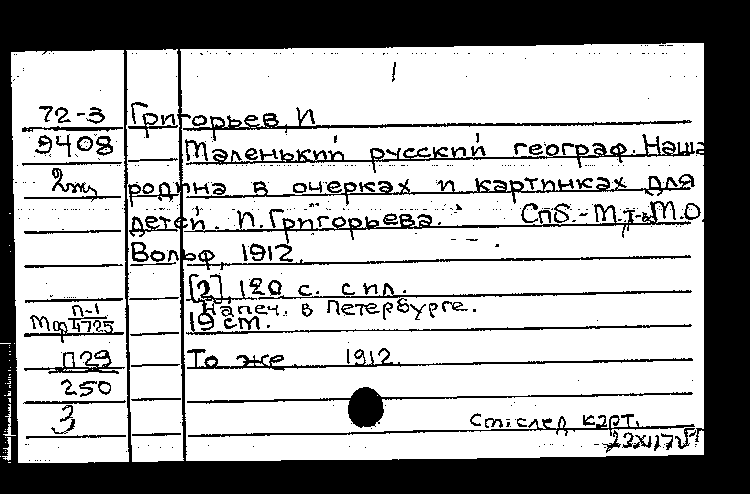 1
72-3 Григорьев, И
9408 Маленький русский географ. Наша
2 родина в очерках и картинках для
детей. И. Григорьева. Спб.-М., т-во М.О.
Вольф, 1912.
[2], 120 с. с ил.
Напеч. в Петербурге.
Мф П-1/4725 19 см.
П29 То же. 1912.
250
3 См. след. карт.